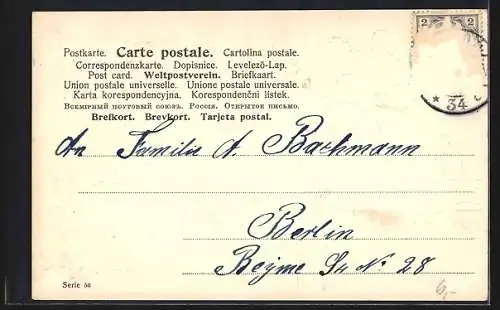 Postkarte. Carte postale. Cartolina postale.
Correspondenzkarte. Dopisnice. Levelező-Lap.
Post card. Weltpostverein. Briefkaart.
Union postale universelle. Unione postale universale.
Karta korespondencyjna. Korespondenční lístek.
Всемірный почтовый союзъ. Россія. Открытое письмо.
Brefkort. Brevkort. Tarjeta postal.
2 2
* 34 c
An Familie A. Bachmann
Berlin
Beyme Str No. 28
Serie 56
6,-